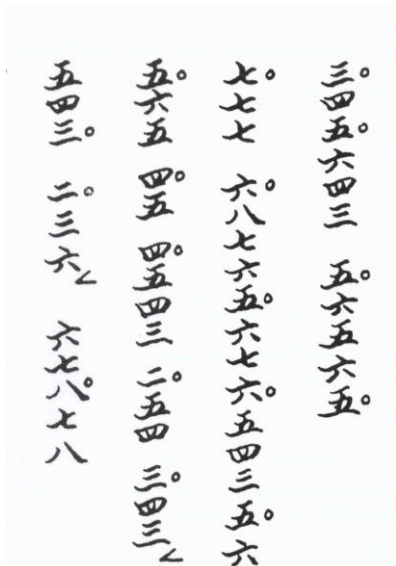 三。四五。六四三 五。六五六五。
七。七七 六。八七六五。六七六。五四三五。六
五。六五 四。五 四。五四三 二。五四 三。四三∠
五四三。 二。三六∠ 六七八。七八